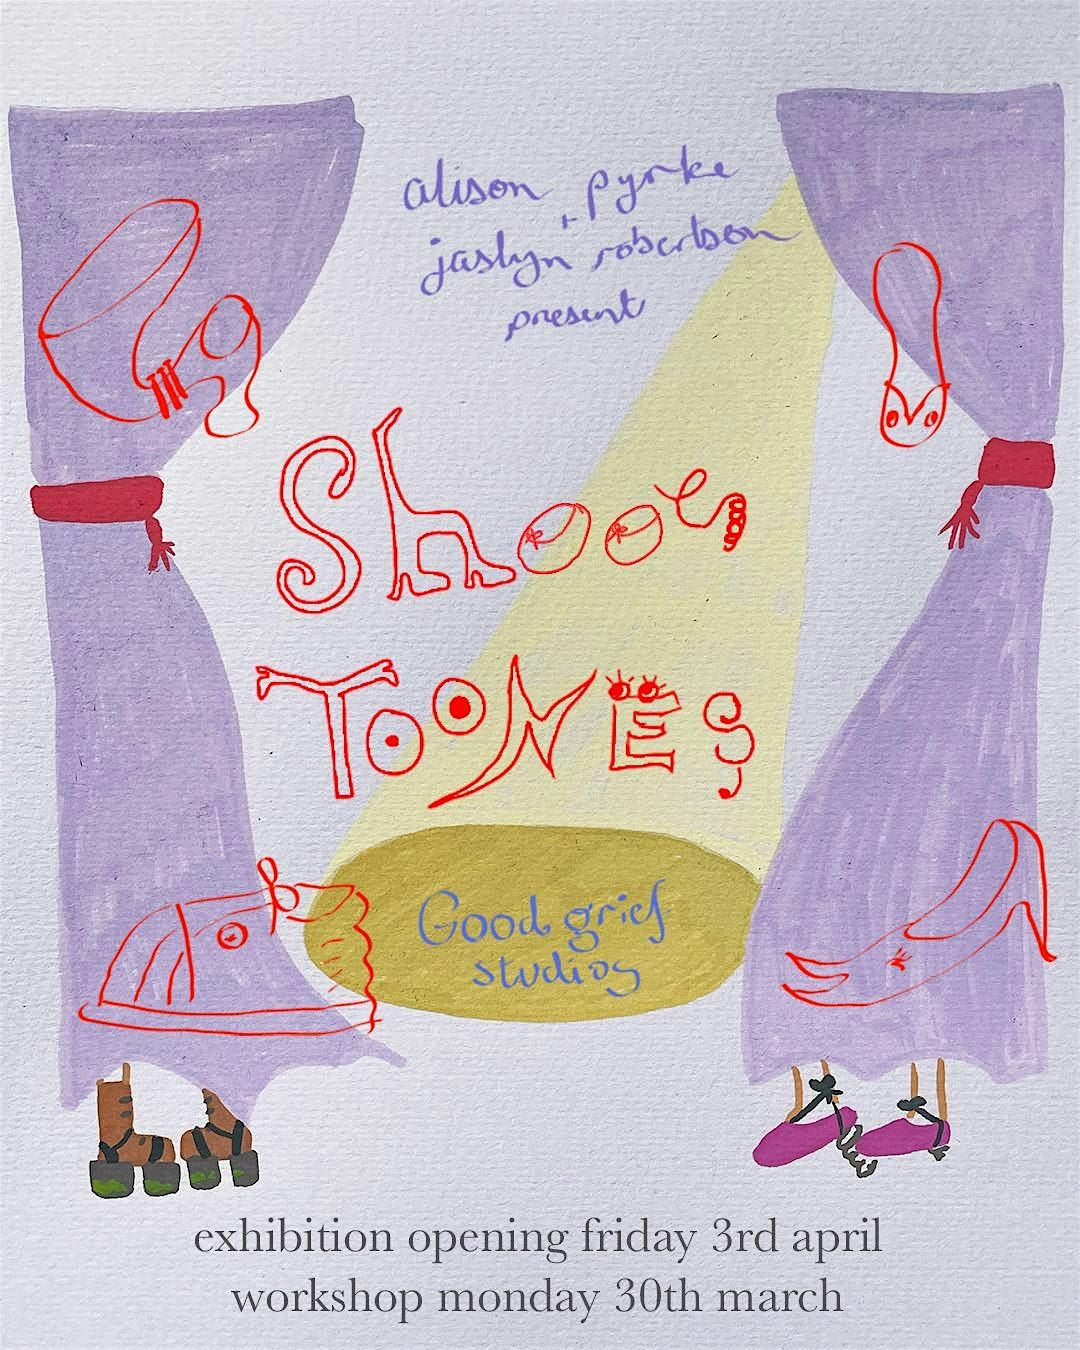 alison pyrke
+
jaslyn robertson
present
Shooes
TooNES
Good grief
studios
exhibition opening friday 3rd april
workshop monday 30th march